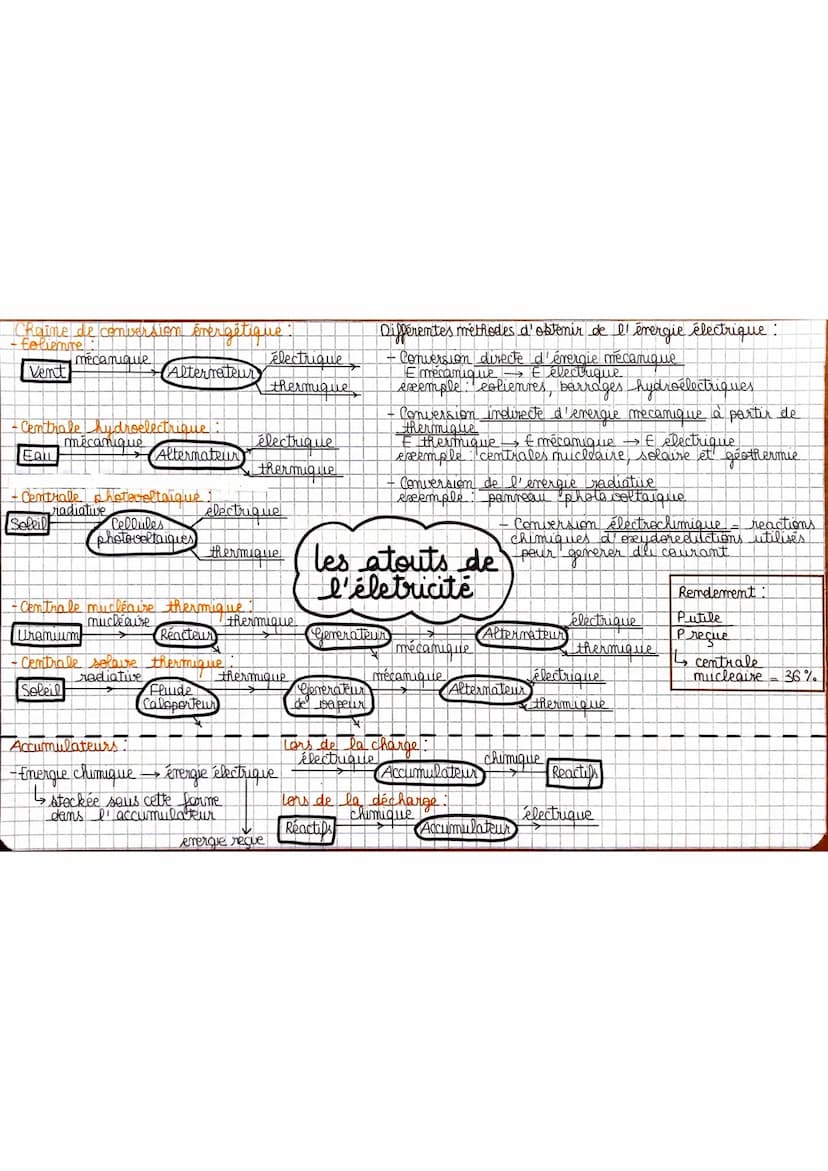 Chaîne de conversion énergétique :
- Éolienne :
Vent
mécanique
Alternateur
électrique
thermique
- Centrale hydroélectrique :
Eau
mécanique
Alternateur
électrique
thermique
- Centrale photovoltaïque :
Soleil
radiative
Cellules
photovoltaïques
électrique
thermique
Différentes méthodes d'obtenir de l'énergie électrique :
- Conversion directe d'énergie mécanique
E mécanique → E électrique
exemple : éoliennes, barrages hydroélectriques
- Conversion indirecte d'énergie mécanique à partir de
thermique
E thermique → E mécanique → E électrique
exemple : centrales nucléaire, solaire et géothermie
- Conversion de l'énergie radiative
exemple : panneau photovoltaïque
- Conversion électrochimique = reactions
chimiques d'oxydoreductions utilisés
pour generer du courant
les atouts de
l'életricité
- Centrale nucléaire thermique :
Uranium
nucléaire
Réacteur
thermique
Generateur
mécanique
Alternateur
électrique
thermique
- Centrale solaire thermique :
Soleil
radiative
Fluide
Caloporteur
thermique
Generateur
de vapeur
mécanique
Alternateur
électrique
thermique
Rendement :
P utile
P reçue
↳ centrale
nucleaire = 36%
Accumulateurs :
- Energie chimique → énergie électrique
↳ stockée sous cette forme
dans l'accumulateur
energie reçue
Lors de la charge :
électrique
Accumulateur
chimique
Reactifs
Lors de la décharge :
Réactifs
chimique
Accumulateur
électrique